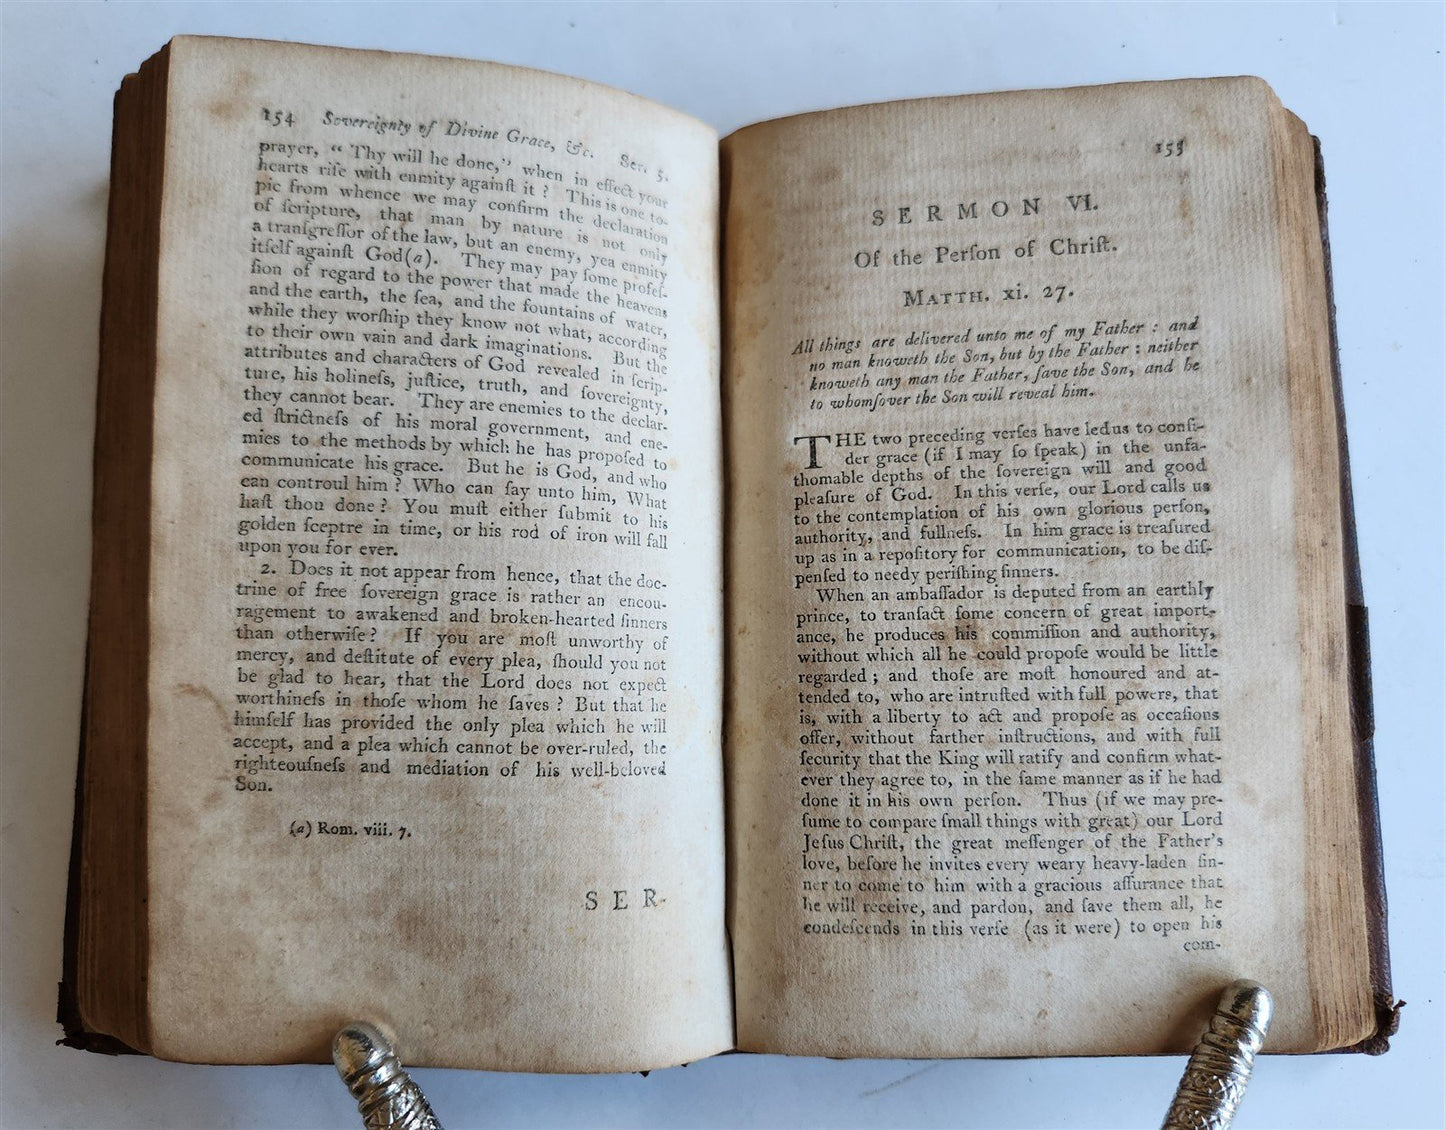 154 Sovereignty of Divine Grace, &c. Ser. 5.
prayer, “ Thy will be done,” when in effect your
hearts riſe with enmity againſt it ? This is one to-
pic from whence we may confirm the declaration
of ſcripture, that man by nature is not only
a tranſgreſſor of the law, but an enemy, yea enmity
itſelf againſt God(a). They may pay ſome profeſ-
ſion of regard to the power that made the heavens
and the earth, the ſea, and the fountains of water,
while they worſhip they know not what, according
to their own vain and dark imaginations. But the
attributes and characters of God revealed in ſcrip-
ture, his holineſs, juſtice, truth, and ſovereignty,
they cannot bear. They are enemies to the declar-
ed ſtrictneſs of his moral government, and ene-
mies to the methods by which he has propoſed to
communicate his grace. But he is God, and who
can controul him ? Who can ſay unto him, What
haſt thou done ? You muſt either ſubmit to his
golden ſceptre in time, or his rod of iron will fall
upon you for ever.
2. Does it not appear from hence, that the doc-
trine of free ſovereign grace is rather an encou-
ragement to awakened and broken-hearted ſinners
than otherwiſe ? If you are moſt unworthy of
mercy, and deſtitute of every plea, ſhould you not
be glad to hear, that the Lord does not expect
worthineſs in thoſe whom he ſaves ? But that he
himſelf has provided the only plea which he will
accept, and a plea which cannot be over-ruled, the
righteouſneſs and mediation of his well-beloved
Son.
(a) Rom. viii. 7.
SER-
155
SERMON VI.
Of the Perſon of Chriſt.
MATTH. xi. 27.
All things are delivered unto me of my Father : and
no man knoweth the Son, but by the Father : neither
knoweth any man the Father, ſave the Son, and he
to whomſover the Son will reveal him.
THE two preceding verſes have led us to conſi-
der grace (if I may ſo ſpeak) in the unfa-
thomable depths of the ſovereign will and good
pleaſure of God. In this verſe, our Lord calls us
to the contemplation of his own glorious perſon,
authority, and fullneſs. In him grace is treaſured
up as in a repoſitory for communication, to be diſ-
penſed to needy periſhing ſinners.
When an ambaſſador is deputed from an earthly
prince, to tranſact ſome concern of great import-
ance, he produces his commiſſion and authority,
without which all he could propoſe would be little
regarded ; and thoſe are moſt honoured and at-
tended to, who are intruſted with full powers, that
is, with a liberty to act and propoſe as occaſions
offer, without farther inſtructions, and with full
ſecurity that the King will ratify and confirm what-
ever they agree to, in the ſame manner as if he had
done it in his own perſon. Thus (if we may pre-
ſume to compare ſmall things with great) our Lord
Jeſus Chriſt, the great meſſenger of the Father’s
love, before he invites every weary heavy-laden ſin-
ner to come to him with a gracious aſſurance that
he will receive, and pardon, and ſave them all, he
condeſcends in this verſe (as it were) to open his
com-